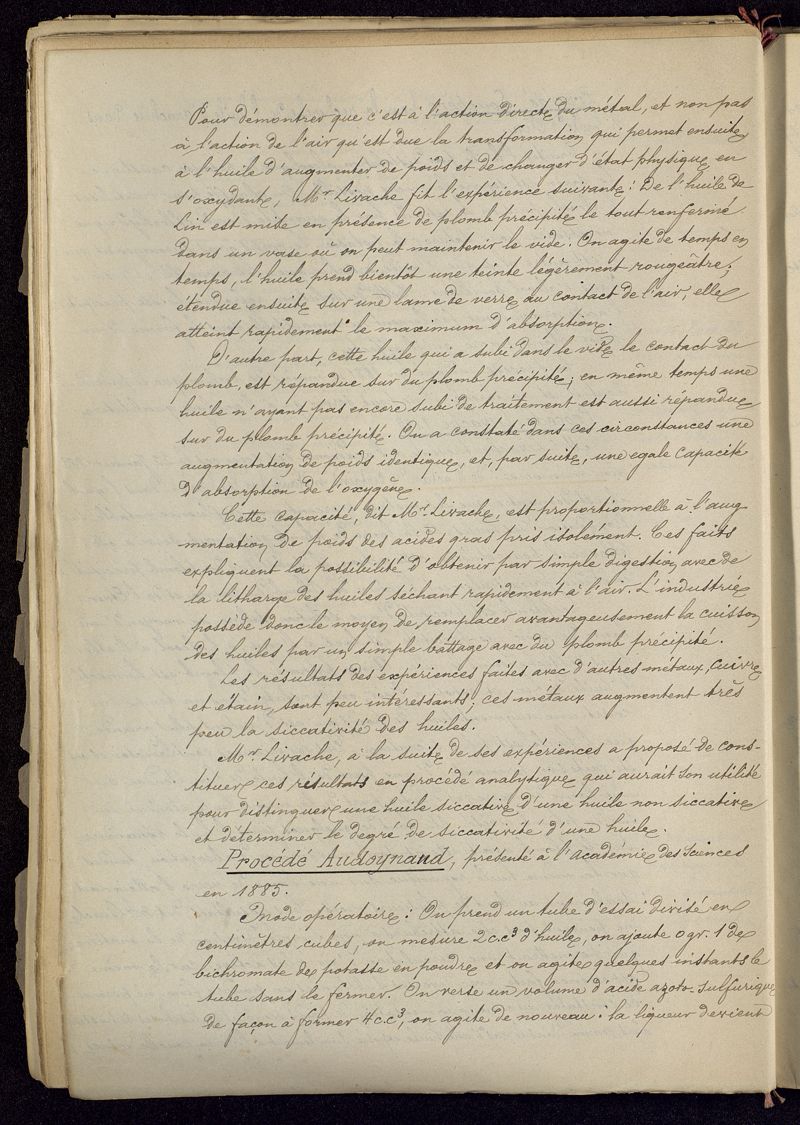 Pour démontrer que c'est à l'action directe du métal, et non pas
à l'action de l'air qu'est due la transformation qui permet ensuite
à l'huile d'augmenter de poids et de changer d'état physique en
s'oxydant, Mr Livache fit l'expérience suivante: De l'huile de
Lin est mise en présence de plomb précipité le tout renfermé
dans un vase où on peut maintenir le vide. On agite de temps en
temps, l'huile prend bientôt une teinte légèrement rougeâtre;
étendue ensuite sur une lame de verre au contact de l'air, elle
atteint rapidement le maximum d'absorption.
D'autre part, cette huile qui a subi dans le vide le contact du
plomb, est répandue sur du plomb précipité; en même temps une
huile n'ayant pas encore subi de traitement est aussi répandue
sur du plomb précipité. On a constaté dans ces circonstances une
augmentation de poids identique, et, par suite, une égale capacité
d'absorption de l'oxygène.
Cette capacité, dit Mr Livache, est proportionnelle à l'aug
mentation de poids des acides gras pris isolément. Ces faits
expliquent la possibilité d'obtenir par simple digestion avec de
la litharge des huiles séchant rapidement à l'air. L'industrie
possède donc le moyen de remplacer avantageusement la cuisson
des huiles par un simple battage avec du plomb précipité.
Les résultats des expériences faites avec d'autres métaux, cuivre
et étain, sont peu intéressants; ces métaux augmentent très
peu la siccativité des huiles.
Mr Livache, à la suite de ses expériences a proposé de cons-
tituer ces résultats en procédé analytique qui aurait son utilité
pour distinguer une huile siccative d'une huile non siccative
et déterminer le degré de siccativité d'une huile.
Procédé Audoynaud, présenté à l'Académie des Sciences
en 1885.
Mode opératoire: On prend un tube d'essai divisé en
centimètres cubes, on mesure 2 c.c³ d'huile, on ajoute 0 gr. 1 de
bichromate de potasse en poudre et on agite quelques instants le
tube sans le fermer. On verse un volume d'acide azoto-sulfurique
de façon à former 4 c.c³, on agite de nouveau: la liqueur devient